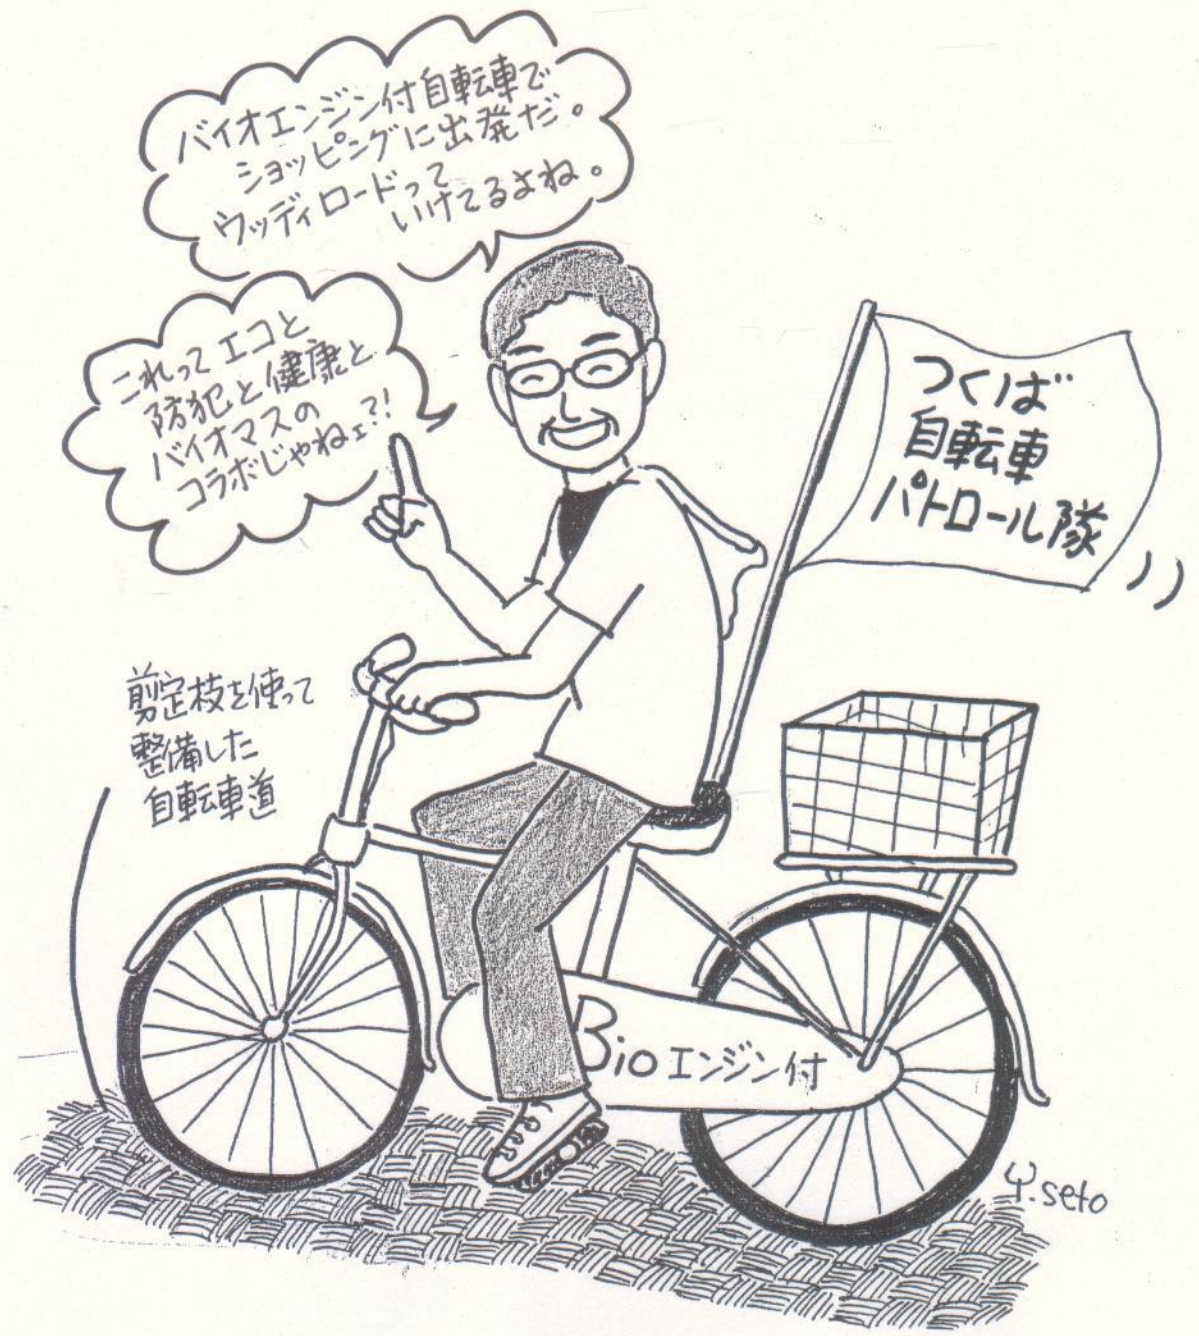 バイオエンジン付自転車で
ショッピングに出発だ。
ウッディロードって
いけてるよね。
これって エコと
防犯と健康と
バイオマスの
コラボじゃねェ?!
つくば
自転車
パトロール隊
剪定枝を使って
整備した
自転車道
Bio エンジン付
Y.seto